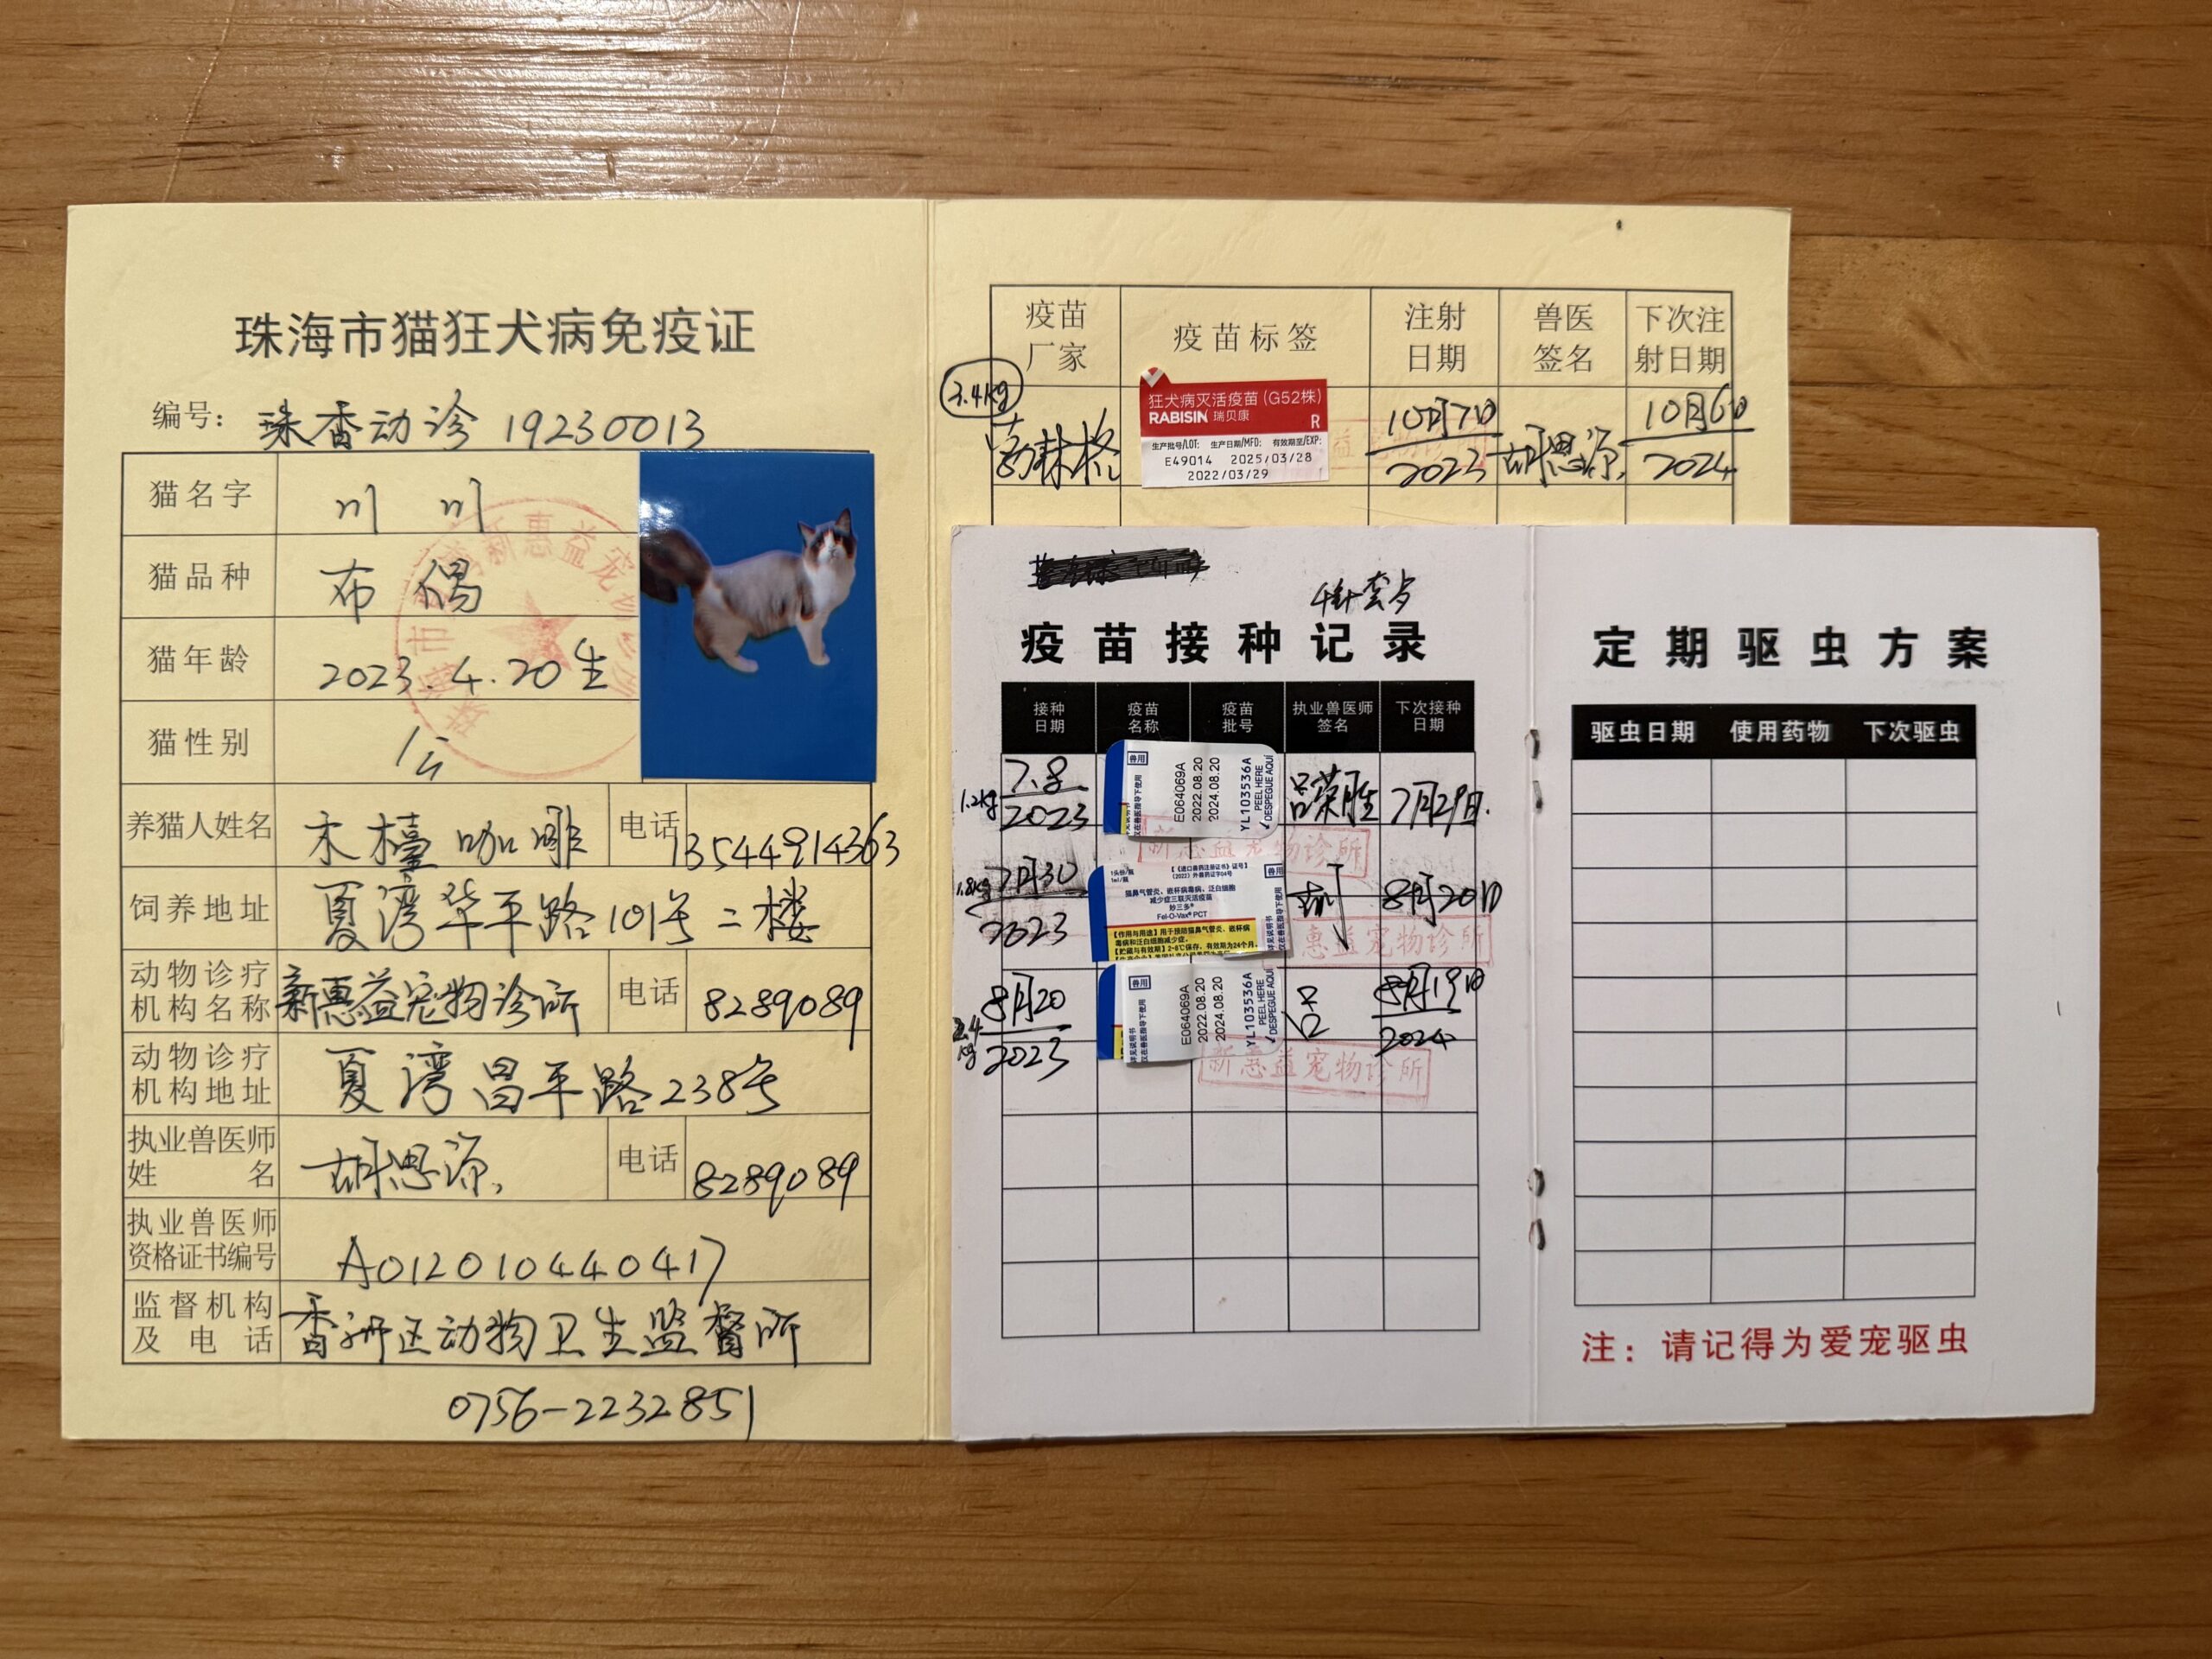 珠海市猫狂犬病免疫证
编号: 珠香动诊 19230013
猫名字 川 川
猫品种 布偶
猫年龄 2023.4.20生
猫性别 公
养猫人姓名 木檯咖啡 电话 13544914363
饲养地址 夏湾华平路101号二楼
动物诊疗机构名称 新惠益宠物诊所 电话 8289089
动物诊疗机构地址 夏湾昌平路238号
执业兽医师姓名 胡思源 电话 8289089
执业兽医师资格证书编号 A012010440417
监督机构及电话 香洲区动物卫生监督所
0756-2232851
疫苗厂家 疫苗标签 注射日期 兽医签名 下次注射日期
3.4kg
狂犬病灭活疫苗(G52株)
RABISIN 瑞贝康 R
生产批号/LOT: 生产日期/MFD: 有效期至/EXP:
E49014 2025/03/28
2022/03/29
10月7日
2023
胡思源
10月6日
2024
4针套步
疫苗接种记录
接种日期 疫苗名称 疫苗批号 执业兽医师签名 下次接种日期
1.2kg
7.8
2023
兽用
E064069A
2022.08.20
2024.08.20
YL103536A
PEEL HERE
DESPEGUE AQUÍ
吕荣胜 7月29日.
新惠益宠物诊所
1.8kg
7月30
2023
1头份/瓶
1ml/瓶
【《进口兽药注册证书》证号】
(2022)外兽药证字04号
兽用
猫鼻气管炎、嵌杯病毒病、泛白细胞
减少症三联灭活疫苗
妙三多®
Fel-O-Vax® PCT
【作用与用途】用于预防猫鼻气管炎、嵌杯病
毒病和泛白细胞减少症。
【贮藏与有效期】2~8℃保存,有效期为24个月。
8月20日
惠益宠物诊所
2.4kg
8月20
2023
兽用
E064069A
2022.08.20
2024.08.20
YL103536A
PEEL HERE
DESPEGUE AQUÍ
吕
8月19日
2024
新惠益宠物诊所
定期驱虫方案
驱虫日期 使用药物 下次驱虫
注: 请记得为爱宠驱虫